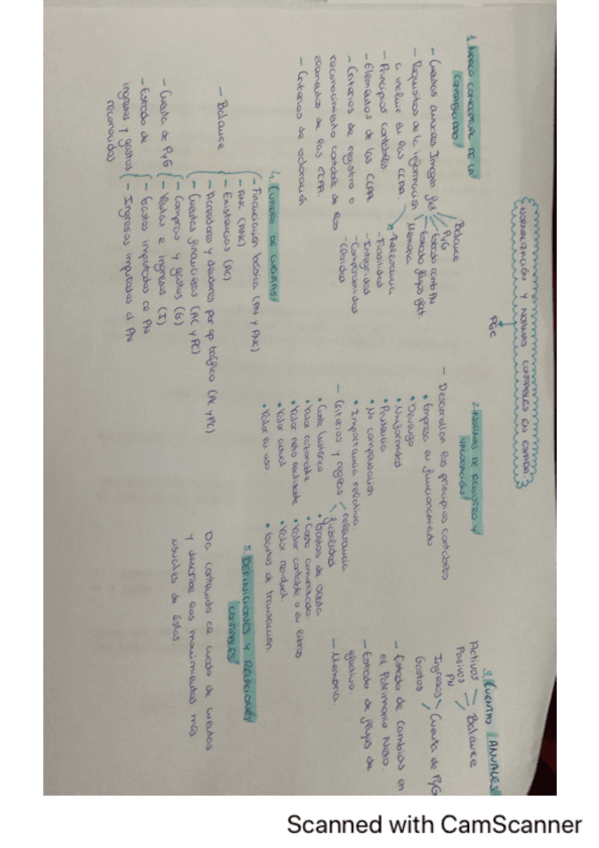 NORMALIZACIÓN Y NORMAS CONTABLES EN ESPAÑA
PGC
1. MARCO CONCEPTUAL DE LA
CONTABILIDAD
- Cuentas anuales. Imagen fiel
Balance
PyG
Estado camb PN
Estado flujos efect.
Memoria
- Requisitos de la información
a incluir en las CCAA.
Relevancia
- Fiabilidad
- Integridad
- Comparabilidad
- Claridad
- Principios contables
- Elementos de las CCAA
- Criterios de registro o
reconocimiento contable de los
elementos de las CCAA.
- Criterios de valoración
2. NORMAS DE REGISTRO Y
VALORACIÓN
- Desarrollan los principios contables
• Empresa en funcionamiento
• Devengo
• Uniformidad
• Prudencia
• No compensación
• Importancia relativa.
- Criterios y reglas
relevancia
fiabilidad
• Coste histórico
• Valor razonable
• Valor neto realizable
• Valor actual
• Valor en uso
• Costes de venta
• Coste amortizado
• Valor contable o en libros
• Valor residual
• Costes de transacción.
3. CUENTAS ANUALES
Activos
Pasivos
PN
Balance
Ingresos
Gastos
Cuenta de PyG
- Estado de cambios en
el Patrimonio Neto.
- Estado de flujos de
efectivo.
- Memoria
4. CUADRO DE CUENTAS
- Balance
- Financiación básica (PN y PNC)
- ANC (ANC)
- Existencias (AC)
- Acreedores y deudores por op tráfico (AC y PC)
- Cuentas financieras (AC y PC)
- Cuenta de PyG
- Compras y gastos (G)
- Ventas e ingresos (I)
- Estado de
ingresos y gastos
reconocidos
- Gastos imputados al PN
- Ingresos imputados al PN
5. DEFINICIONES Y RELACIONES
CONTABLES
Da contenido al cuadro de cuentas
y describe los movimientos más
usuales de éstas.
Scanned with CamScanner